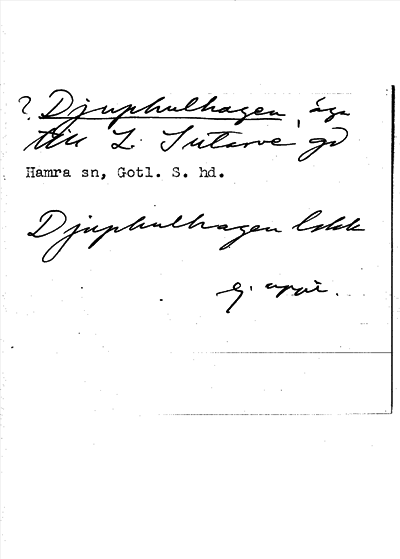 ? Djuphulhagen, äga
till L. Sutarve gd
Hamra sn, Gotl. S. hd.
Djuphulhagen
ej uppt.